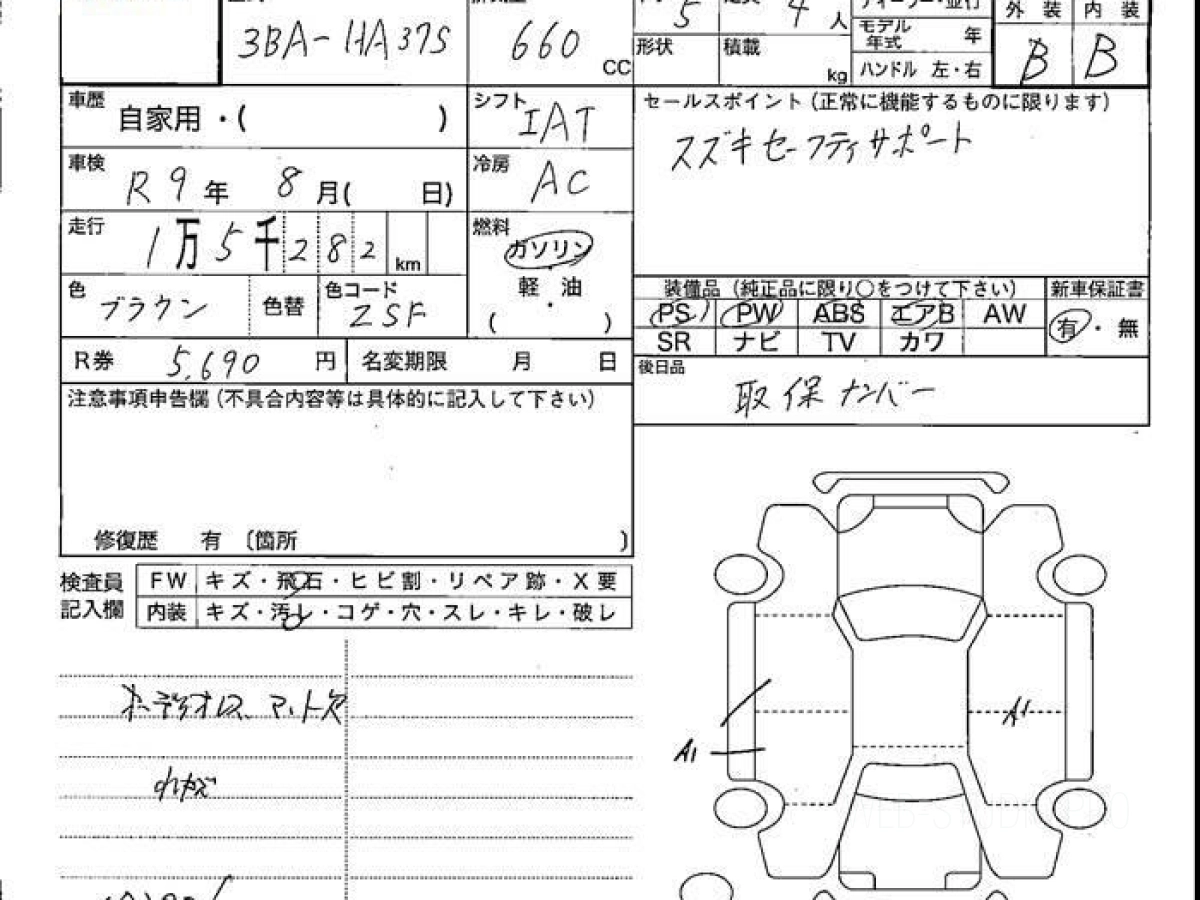 3BA-HA37S
660
CC
5
4人
形状
積載
kg
モデル
年式
年
ハンドル 左・右
外装
内装
B
B
車歴
自家用・( )
シフト
IAT
セールスポイント(正常に機能するものに限ります)
スズキセーフティサポート
車検
R9年 8月( 日)
冷房
AC
走行
1万5千282km
燃料
ガソリン
・
軽油
・
( )
色
ブラウン
色替
色コード
ZSF
装備品(純正品に限り○をつけて下さい)
新車保証書
PS PW ABS エアB AW
有・無
SR ナビ TV カワ
R券
5,690円
名変期限 月 日
後日品
取保ナンバー
注意事項申告欄(不具合内容等は具体的に記入して下さい)
修復歴 有 〔箇所 〕
検査員
記入欄
FW キズ・飛石・ヒビ割・リペア跡・X要
内装 キズ・汚レ・コゲ・穴・スレ・キレ・破レ
オーディオレス、マット欠
A1
A1